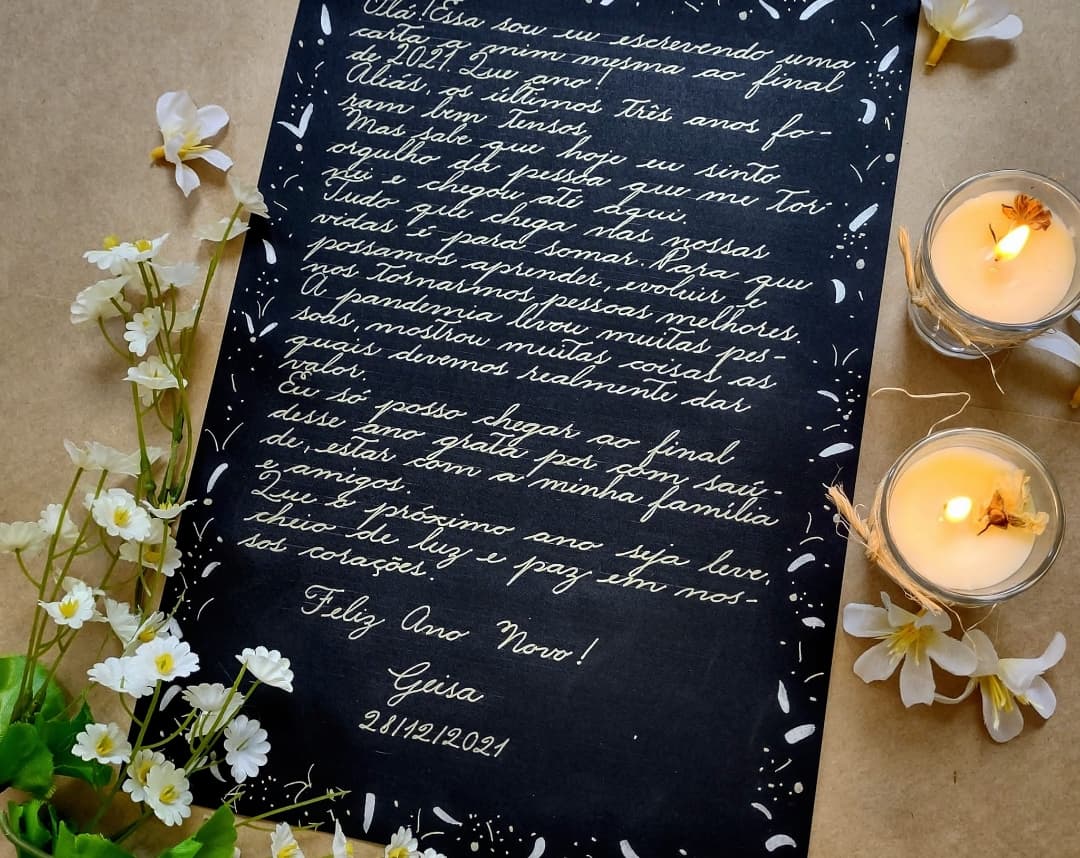 Olá! Essa sou eu escrevendo uma
carta a mim mesma ao final
de 2021. Que ano!
Aliás, os últimos três anos fo-
ram bem tensos.
Mas sabe que hoje eu sinto
orgulho da pessoa que me tor-
nei e chegou até aqui.
Tudo que chega nas nossas
vidas é para somar. Para que
possamos aprender, evoluir e
nos tornarmos pessoas melhores.
A pandemia levou muitas pes-
soas, mostrou muitas coisas as
quais devemos realmente dar
valor.
Eu só posso chegar ao final
desse ano grata por com saú-
de, estar com a minha família
e amigos.
Que o próximo ano seja leve,
cheio de luz e paz em nos-
sos corações.
Feliz Ano Novo!
Geisa
28/12/2021